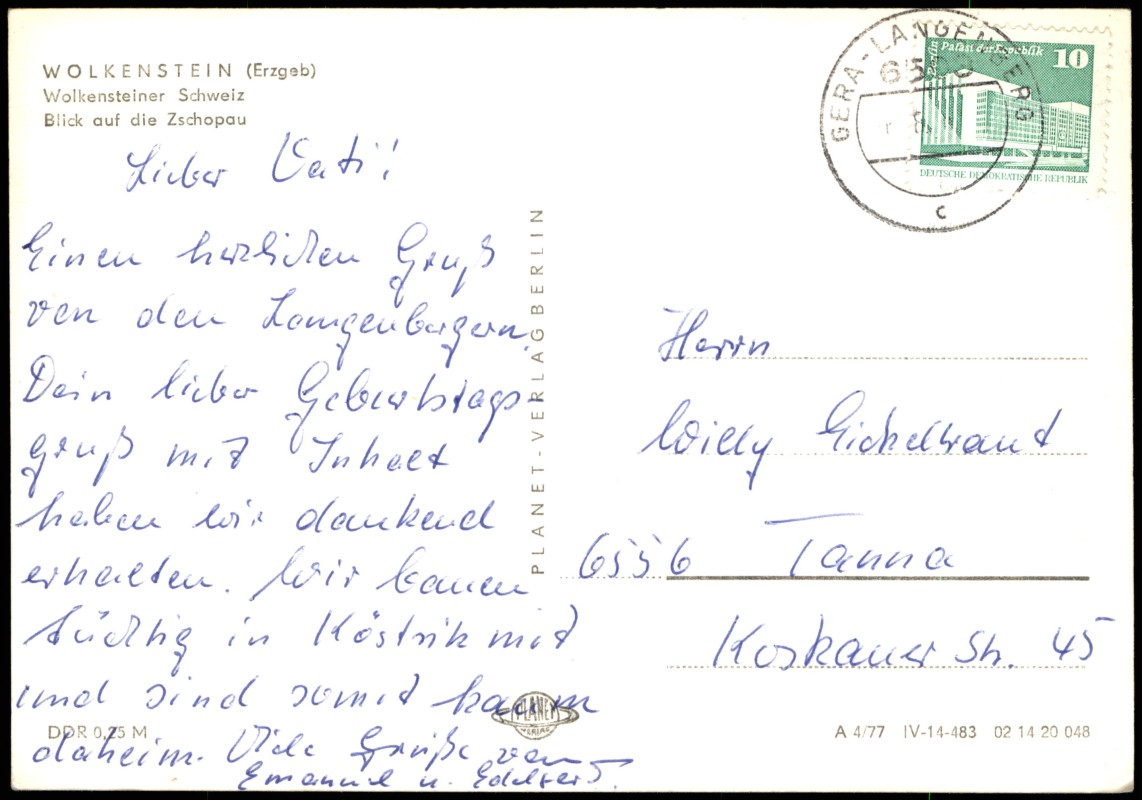 WOLKENSTEIN (Erzgeb)
Wolkensteiner Schweiz
Blick auf die Zschopau
Lieber Vati!
Einen herzlichen Gruß
von den Langenbergern.
Dein lieber Geburtstags-
gruß mit Inhalt
haben wir dankend
erhalten. Wir bauen
tüchtig in Köstrik mit
und sind somit kaum
daheim. Viele Grüße von
Emanuel u.
DDR 0,25 M
PLANET-VERLAG BERLIN
PLANET
VERLAG
GERA-LANGENBERG
6500
c
Berlin Palast der Republik 10
DEUTSCHE DEMOKRATISCHE REPUBLIK
Herrn
Willy Eichelkraut
6556 Tanna
Koskauer Str. 45
A 4/77 IV-14-483 02 14 20 048